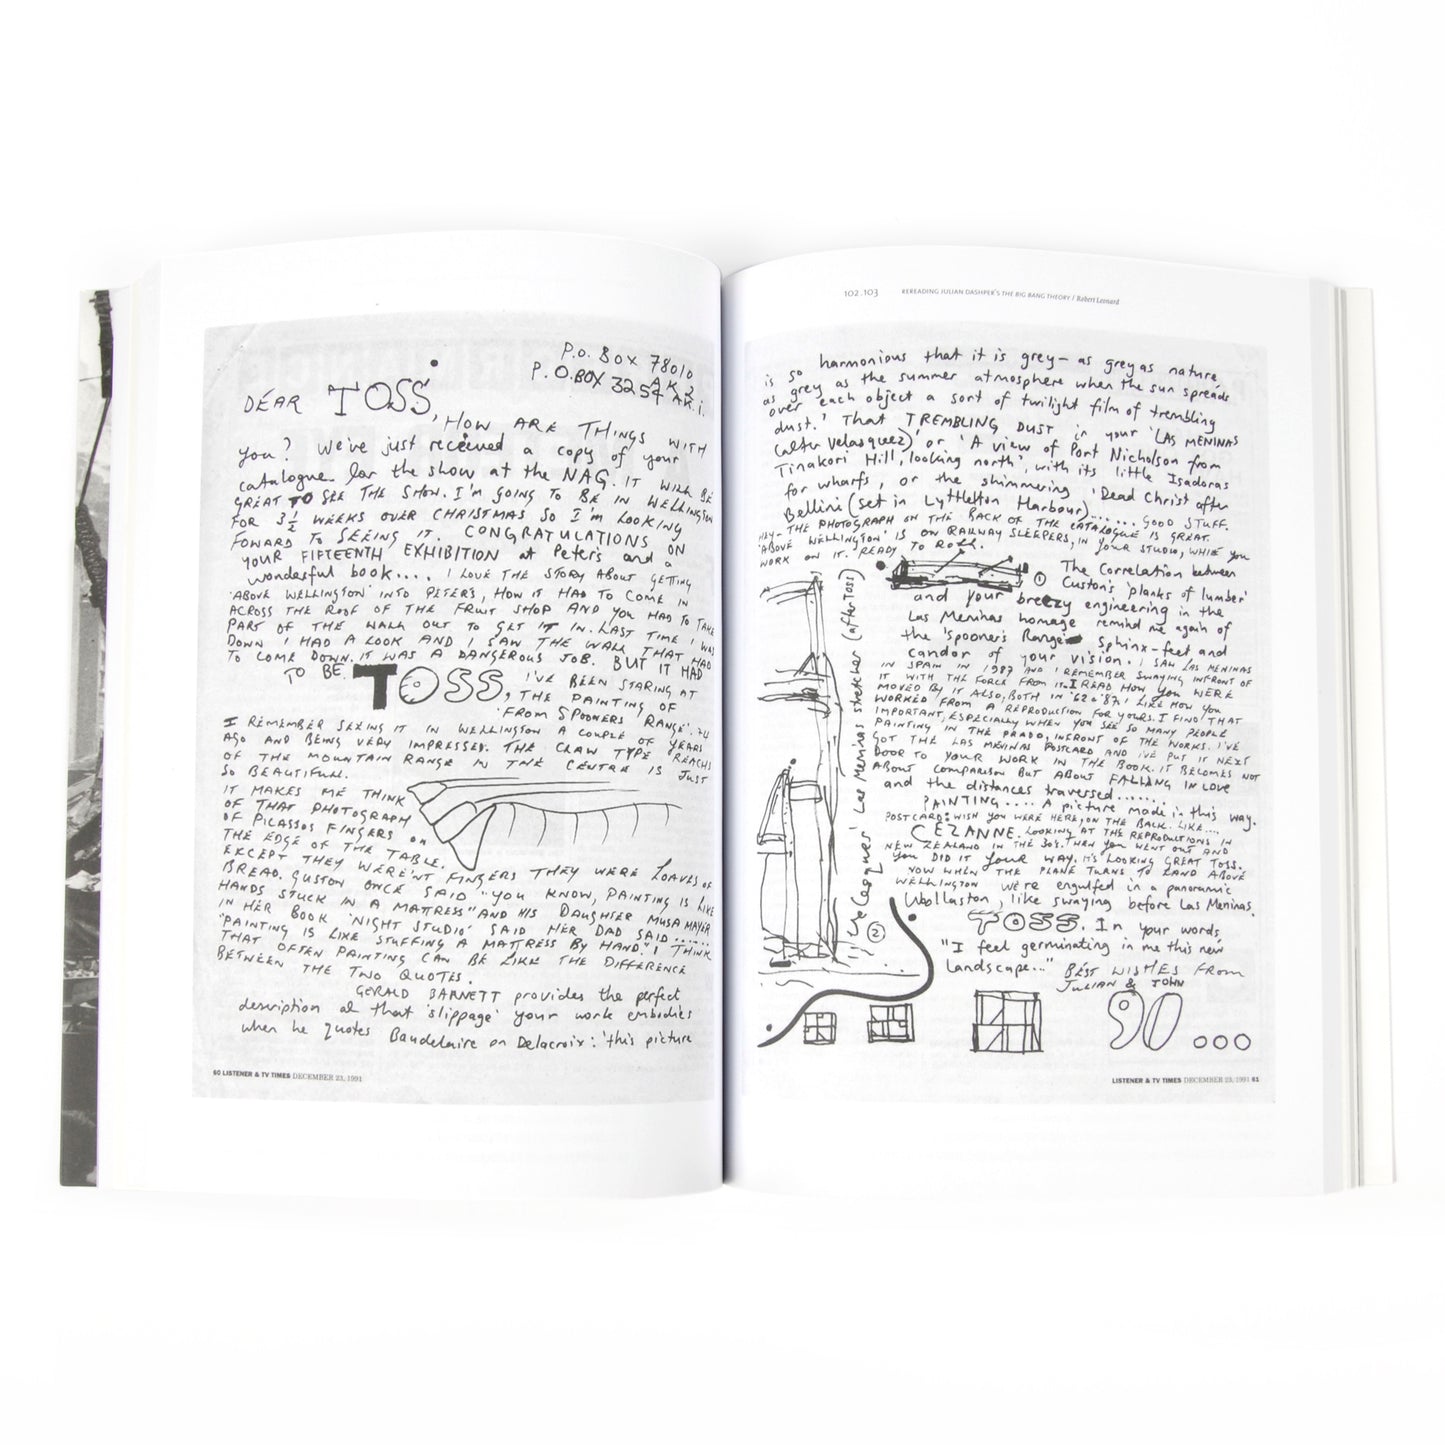 P.O. BOX 78010
AK 2
P.O. BOX 3254 AK.1.
DEAR TOSS,
HOW ARE THINGS WITH
you? We've just received a copy of your
catalogue for the show at the NAG. IT WILL BE
GREAT TO SEE THE SHOW. I'M GOING TO BE IN WELLINGTON
FOR 3½ WEEKS OVER CHRISTMAS SO I'M LOOKING
FOWARD TO SEEING IT. CONGRATULATIONS ON
YOUR FIFTEENTH EXHIBITION at Peter's and a
wonderful book.... I LOVE THE STORY ABOUT GETTING
'ABOVE WELLINGTON' INTO PETER'S, HOW IT HAD TO COME IN
ACROSS THE ROOF OF THE FRUIT SHOP AND YOU HAD TO TAKE
PART OF THE WALL OUT TO GET IT IN. LAST TIME I WAS
DOWN I HAD A LOOK AND I SAW THE WALL THAT HAD
TO COME DOWN. IT WAS A DANGEROUS JOB. BUT IT HAD
TO BE. TOSS, I'VE BEEN STARING AT
THE PAINTING OF
'FROM SPOONERS RANGE'. 74
I REMEMBER SEEING IT IN WELLINGTON A COUPLE OF YEARS
AGO AND BEING VERY IMPRESSED. THE CLAW TYPE REACHS
OF THE MOUNTAIN RANGE IN THE CENTRE IS JUST
SO BEAUTIFULL.
IT MAKES ME THINK
OF THAT PHOTOGRAPH
OF PICASSOS FINGERS ON
THE EDGE OF THE TABLE.
EXCEPT THEY WEREN'T FINGERS THEY WERE LOAVES OF
BREAD. GUSTON ONCE SAID "YOU KNOW, PAINTING IS LIKE
HANDS STUCK IN A MATTRESS" AND HIS DAUGHTER MUSA MAYER
IN HER BOOK 'NIGHT STUDIO' SAID HER DAD SAID......
"PAINTING IS LIKE STUFFING A MATTRESS BY HAND." I THINK
THAT OFTEN PAINTING CAN BE LIKE THE DIFFERENCE
BETWEEN THE TWO QUOTES.
GERALD BARNETT provides the perfect
description of that 'slippage' your work embodies
when he quotes Baudelaire on Delacroix: 'this picture
60 LISTENER & TV TIMES DECEMBER 23, 1991
102.103 REREADING JULIAN DASHPER'S THE BIG BANG THEORY / Robert Leonard
is so harmonious that it is grey – as grey as nature,
as grey as the summer atmosphere when the sun spreads
over each object a sort of twilight film of trembling
dust.' That TREMBLING DUST in your 'LAS MENINAS
(after Velasquez)' or 'A view of Port Nicholson from
Tinakori Hill, looking north', with its little Isadoras
for wharfs, or the shimmering 'Dead Christ after
Bellini (set in Lyttleton Harbour)...... GOOD STUFF.
HEY – THE PHOTOGRAPH ON THE BACK OF THE CATALOGUE IS GREAT.
'ABOVE WELLINGTON' IS ON RAILWAY SLEEPERS, IN YOUR STUDIO, WHILE YOU
WORK ON IT. READY TO ROLL.
1 The Correlation between
Custon's 'planks of lumber'
and your breezy engineering in the
Las Meninas homage remind me again of
the 'Spooner's Range' Sphinx-feet and
candor of your vision. I SAW LAS MENINAS
IN SPAIN IN 1987 AND I REMEMBER SWAYING INFRONT OF
IT WITH THE FORCE FROM IT. I READ HOW YOU WERE
MOVED BY IT ALSO, BOTH IN '62 & '87. I LIKE HOW YOU
WORKED FROM A REPRODUCTION FOR YOURS. I FIND THAT
IMPORTANT, ESPECIALLY WHEN YOU SEE SO MANY PEOPLE
PAINTING IN THE PRADO, INFRONT OF THE WORKS. I'VE
GOT THE LAS MENINAS POSTCARD AND I'VE PUT IT NEXT
DOOR TO YOUR WORK IN THE BOOK. IT BECOMES NOT
ABOUT COMPARISON BUT ABOUT FALLING IN LOVE
and the distances traversed.......
PAINTING.... A picture made in this way.
POSTCARD: WISH YOU WERE HERE, ON THE BACK. LIKE....
CEZANNE. LOOKING AT THE REPRODUCTIONS IN
NEW ZEALAND IN THE 30's. THEN YOU WENT OUT AND
YOU DID IT YOUR WAY. IT'S LOOKING GREAT TOSS.
NOW WHEN THE PLANE TURNS, TO LAND ABOVE
WELLINGTON we're engulfed in a panoramic
Wollaston, like swaying before Las Meninas.
TOSS. In your words,
"I feel germinating in me this new
landscape..." BEST WISHES FROM
JULIAN & JOHN
90...
Velasquez' Las Meninas stretcher (after Toss)
2
LISTENER & TV TIMES DECEMBER 23, 1991 61